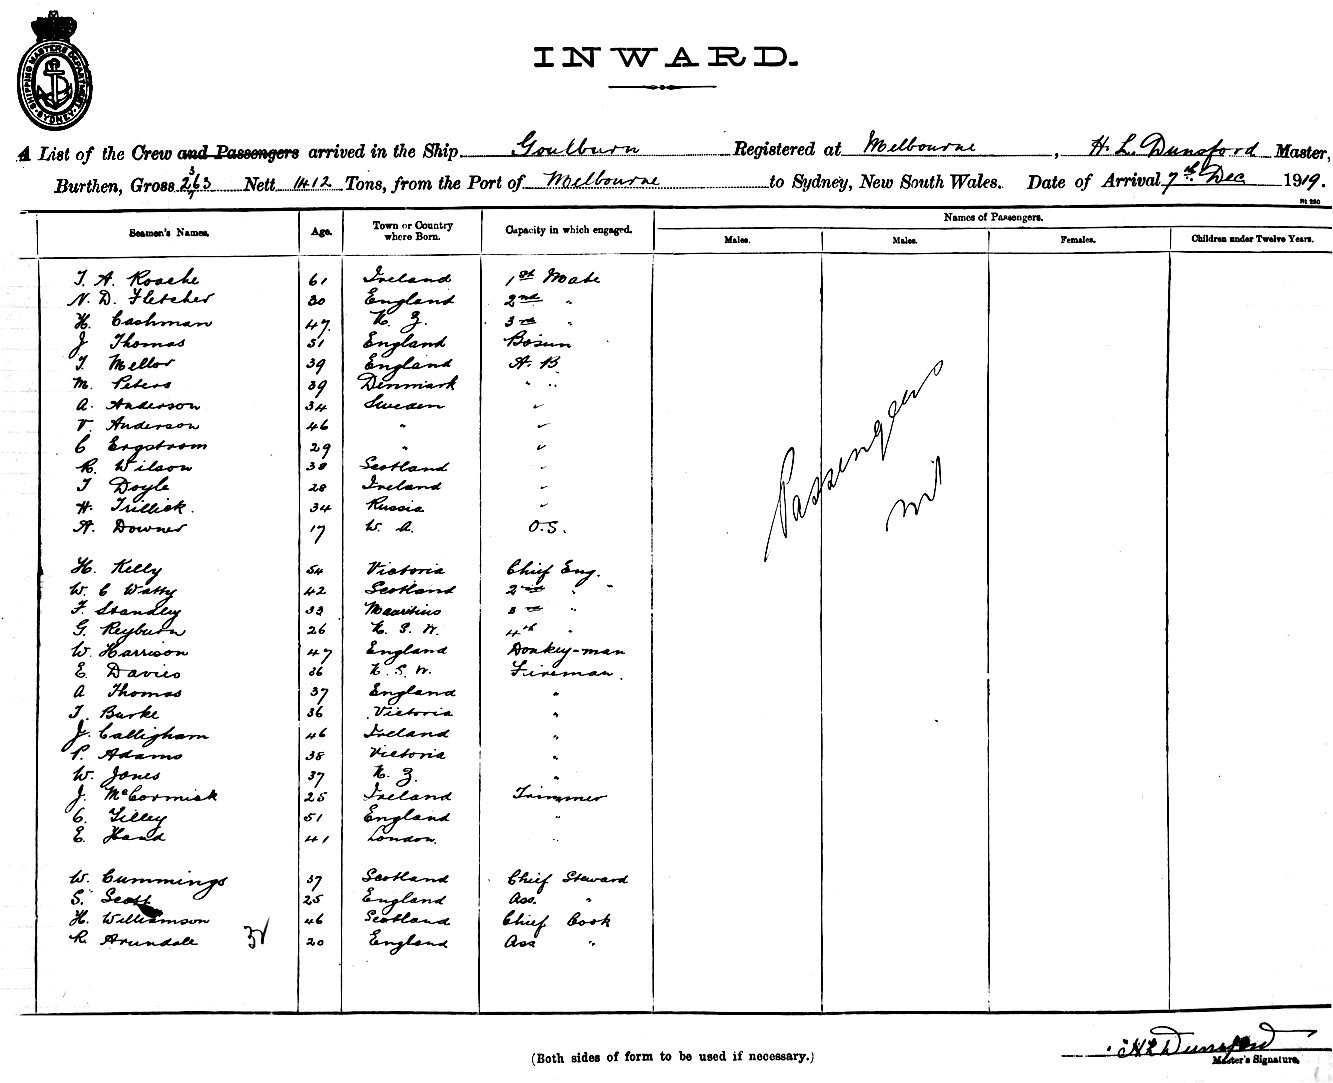 SHIPPING MASTERS DEPARTMENT SYDNEY
INWARD.
A List of the Crew and Passengers arrived in the Ship Goulburn Registered at Melbourne, H. L. Dunsford Master,
Burthen, Gross Nett 1412 Tons, from the Port of Melbourne to Sydney, New South Wales. Date of Arrival 7th Dec 1919.
Names of Passengers.
Seamen's Names. Age. Town or Country where Born. Capacity in which engaged. Males. Males. Females. Children under Twelve Years.
T. A. Roache 61 Ireland 1st Mate
N. D. Fletcher 30 England 2nd "
H. Cashman 47 N. Z. 3rd "
J Thomas 51 England Bosun
T. Mellor 39 England A. B
M. Peters 39 Denmark " "
A. Anderson 34 Sweden "
V. Anderson 46 " "
C Engstrom 29 " "
R. Wilson 38 Scotland "
T Doyle 28 Ireland "
H. Trillick. 34 Russia "
A. Downer 17 W. A. O.S.
H. Kelly 54 Victoria Chief Eng.
W. C Watty 42 Scotland 2nd " "
F. Standley 33 Mauritius 3rd "
G. Reyburn 26 N. S. W. 4th "
W. Harrison 47 England Donkey-man
E. Davies 36 N. S. W. Fireman.
A Thomas 37 England "
T. Burke 36 Victoria "
J. Calligham 46 Ireland "
P. Adams 38 Victoria "
W. Jones 37 N. Z. "
J. McCormick 25 Ireland Trimmer
C. Tilley 51 England "
E. Hand 41 London. "
W. Cummings 37 Scotland Chief Steward
S. Scott 25 England Ass. "
H. Williamson 46 Scotland Chief Cook
R. Arundale 20 England Ass "
Passengers
nil
(Both sides of form to be used if necessary.)
H L Dunsford
Master's Signature.